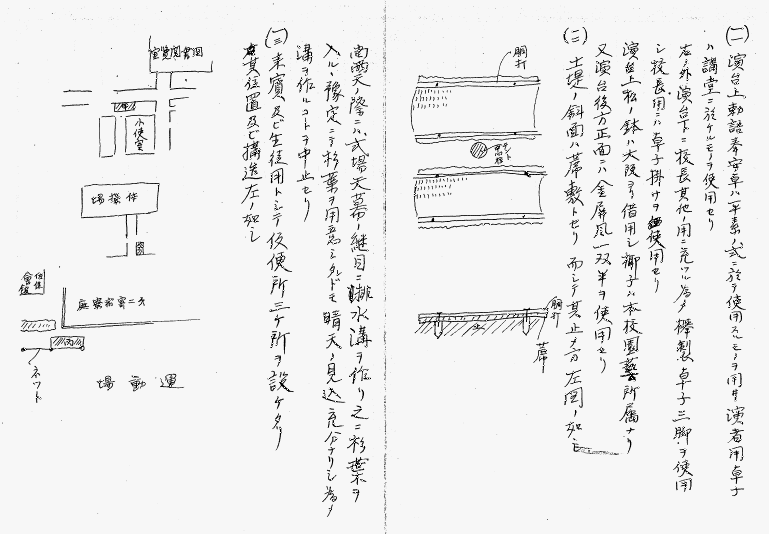 (一) 演台上勅語奉安卓ハ平素ノ式ニ於テ使用スルモノヲ用ヰ演者用卓子
ハ講堂ニ於ケルモノヲ使用セリ
左ノ外演台下ニ校長其他ノ用ニ充ツル為メ欅製卓子三脚ヲ使用
シ校長用ニハ卓子掛ケヲ使用セリ
演台上松ノ鉢ハ大阪ヨリ借用シ椰子ハ本校園藝所属ナリ
又演台後方正面ニハ金屏風一双半ヲ使用セリ
(二) 土堤ノ斜面ハ蓆敷トセリ 而シテ其止メ方左図ノ如シ
胴打
胴打
蓆
尚雨天ノ際ニハ式場天幕ノ継目ニ排水溝ヲ作リ之ニ杉葉ヲ
入ル、豫定ニテ杉葉ヲ用意シタレドモ晴天ノ見込充分ナリシ為メ
溝ヲ作ルコトヲ中止セリ
(三) 来賓及ビ生徒用トシテ仮便所三ケ所ヲ設ケタリ
其位置及ビ構造左ノ如シ
図書閲覧室
小使室
場操体
第二寄宿寮庭
ネット
場動運